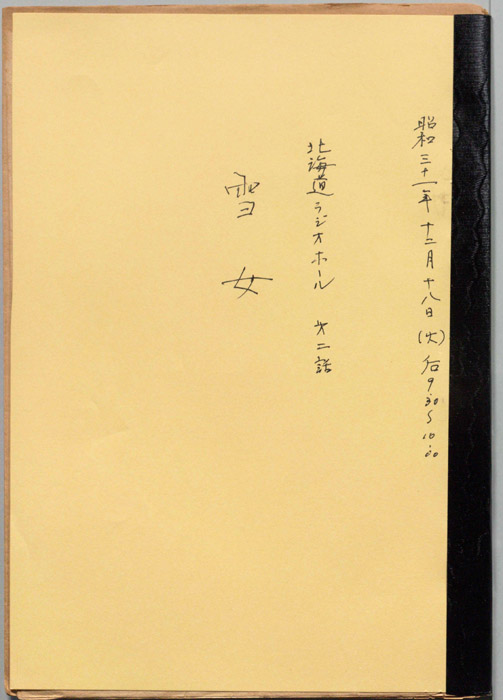 昭和三十一年十二月十八日(火)后9.30〜10.00
北海道ラジオホール 才二話
雪女